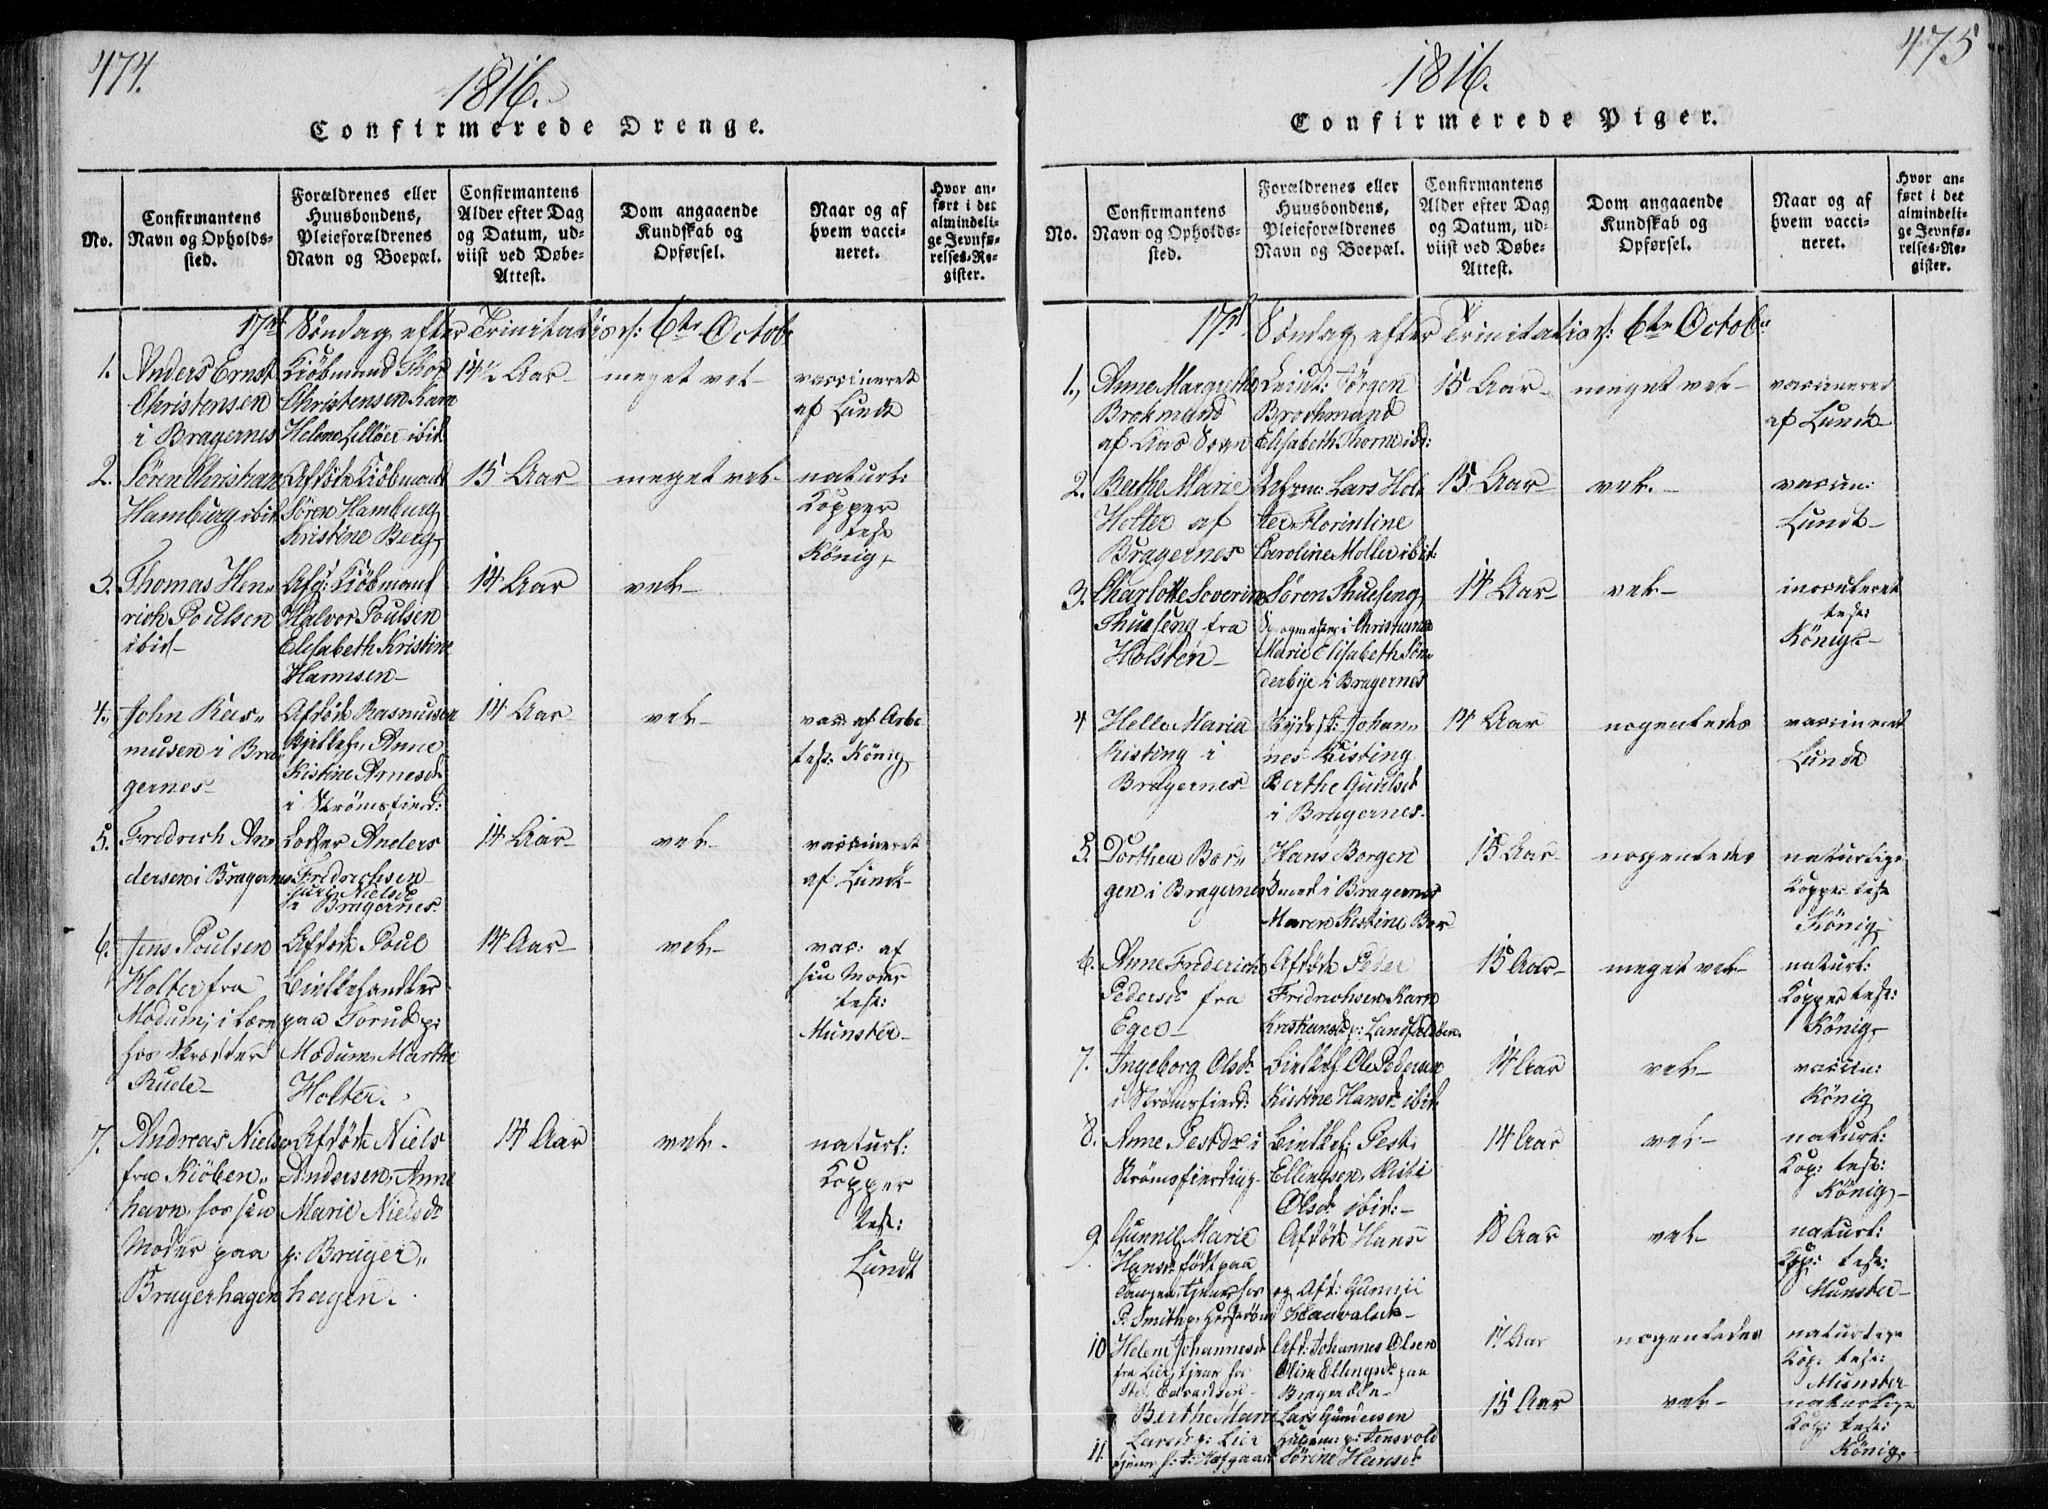 474.
1816.
Confirmerede Drenge.
No.
Confirmantens
Navn og Opholds-
sted.
Forældrenes eller
Huusbondens,
Pleieforældrenes
Navn og Boepæl.
Confirmantens
Alder efter Dag
og Datum, ud-
viist ved Døbe-
Attest.
Dom angaaende
Kundskab og
Opførsel.
Naar og af
hvem vacci-
neret.
Hvor an-
ført i det
almindeli-
ge Jevnfø-
relses-Re-
gister.
17de Søndag efter Trinitatis d: 6te Octobr
1. Anders Ernst
Christensen
i Bragernes
Kiöbmand Thor
Christensen Karn
Helene ibid
14½ Aar
meget vel
vaccineret
af Lundt
2. Sören Christian
Hamburg ibid
Afdöde Kiöbmand
Sören Hamburg
Kristine Berg
15 Aar
meget vel
naturl:
Kopper
test
König
3. Thomas Hen-
rich Poulsen
ibid
Afg: Kiöbmand
Halvor Poulsen
Elisabeth Kristine
Harmsen
14 Aar
vel
4. John Ras-
musen i Bra-
gernes
Afdöde Rasmusen
Anne
Kistine Arnesd:
i Strömsfierd:
14 Aar
vel
vac: af Arbo
test: König
5. Fredrich An-
dersen i Bragernes
Lodser Anders
Fridrichsen
Guri Nielsd:
i Bragernes
14 Aar
vel
vaccineret
af Lundt
6. Jens Poulsen
Holter fra
Modum, i Lære
hos Skrædder
Rude
Afdöde Poul
Bielkehandler
paa Torud p:
Modum. Marthe
Holter.
14 Aar
vel
vac: af
sin Moder
test:
Munster
7. Andreas Nielsen
fra Kiöben-
havn, hos sin
Moder paa
Bragerhagen
Afdöde Niels
Andersen, Anne
Marie Nielsd:
p: Brager-
hagen.
14 Aar
vel
naturl:
Kopper
test:
Lundt
475
1816.
Confirmerede Piger.
No.
Confirmantens
Navn og Opholds-
sted.
Forældrenes eller
Huusbondens,
Pleieforældrenes
Navn og Boepæl.
Confirmantens
Alder efter Dag
og Datum, ud-
viist ved Døbe-
Attest.
Dom angaaende
Kundskab og
Opførsel.
Naar og af
hvem vacci-
neret.
Hvor an-
ført i det
almindeli-
ge Jevnfø-
relses-Re-
gister.
17de Søndag efter Trinitatis d: 6te Octobr
1. Anne Margrethe
Brokmand
af Aas Sogn
Leiut: Jörgen
Brochmand
Elisabeth Thorne ibd:
15 Aar
meget vel
vaccineret
af Lundt
2. Berthe Marie
Holter af
Bragernes
Lars Hol-
ter, Florintine
Caroline Moller ibid:
15 Aar
vel
vaccin:
Lundt
3. Charlotte Severine
Thueseng fra
Holsten
Sören Thueseng
Sprogmester i Christiania
Marie Elisabeth Sön-
derbye i Bragernes
14 Aar
vel
inoculeret
test:
König
4 Helle Maria
Kisting i
Bragernes
Johan-
nes Kisting
Berthe Gulilsd:
i Bragernes
14 Aar
nogenledes
vaccineret
Lundt
5. Dorthea Bor-
gen i Bragernes
Hans Borgen
Smed i Bragernes
Maren Kistine Bor
15 Aar
nogenledes
naturlige
Kopper test
König
6. Anne Friderich
Pedersd: fra
Eger
Afdöde Peder
Fridrichsen Karn
Kristiansd: p: Landfaldöen.
15 Aar
meget vel
naturl:
Kopper test:
König
7. Ingeborg Olsd:
i Strömsfierd:
Bielkeh. Ole Pedersen
Kistine Hansd: ibid:
14 Aar
vel
vaccin:
König
8. Anne Pestdr i
Strömsfierding
Bielkeh: Pest.
Ellingsen, Kisti
Olsd: ibid:
14 Aar
vel
naturl:
Kop: test:
König
9. Gunnil Marie
Hansd: födt paa
Tangen, tjener hos
P: Smith p:
Afdöde Hans
og Afd: Gunnil
18 Aar
vel
naturl:
Kop: test:
Munster
10 Helene Johannesd:
fra Lier, tjener hos
Afd: Johannes Olsen
Oline Ellingsd: paa
Brageröen
17 Aar
nogenledes
naturlige
Kop: test:
Munster
11. Berthe Marie
Larsd: p: Lier
tjener
Lars Gundersen
p: Tensvold
Sörine Hansd:
15 Aar
vel
naturlige
Kop: test:
König